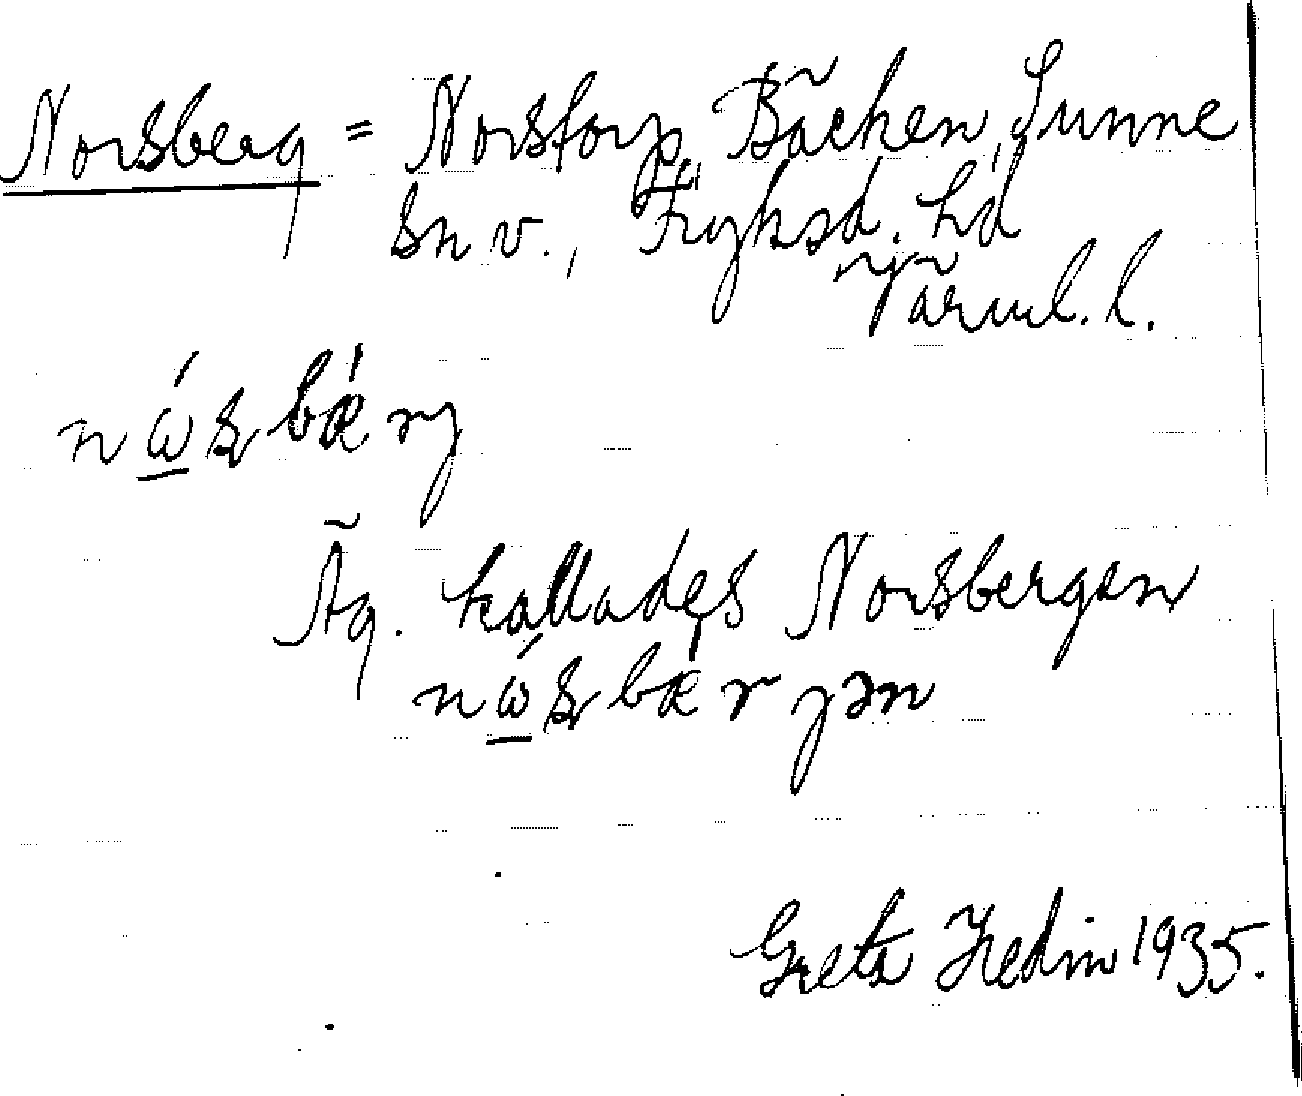 Norsberg = Norstorp, Bäcken, Sunne
sn v., Fryksd. hd
Värml. l.
nώʂbǽrj
Äg. kallades Norsbergen
nώʂbærjən
Greta Hedin 1935.